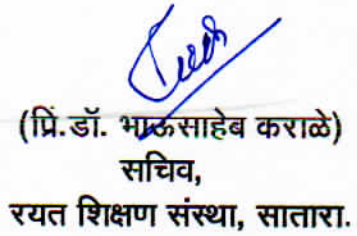 (प्रिं.डॉ. भाऊसाहेब कराळे)
सचिव,
रयत शिक्षण संस्था, सातारा.